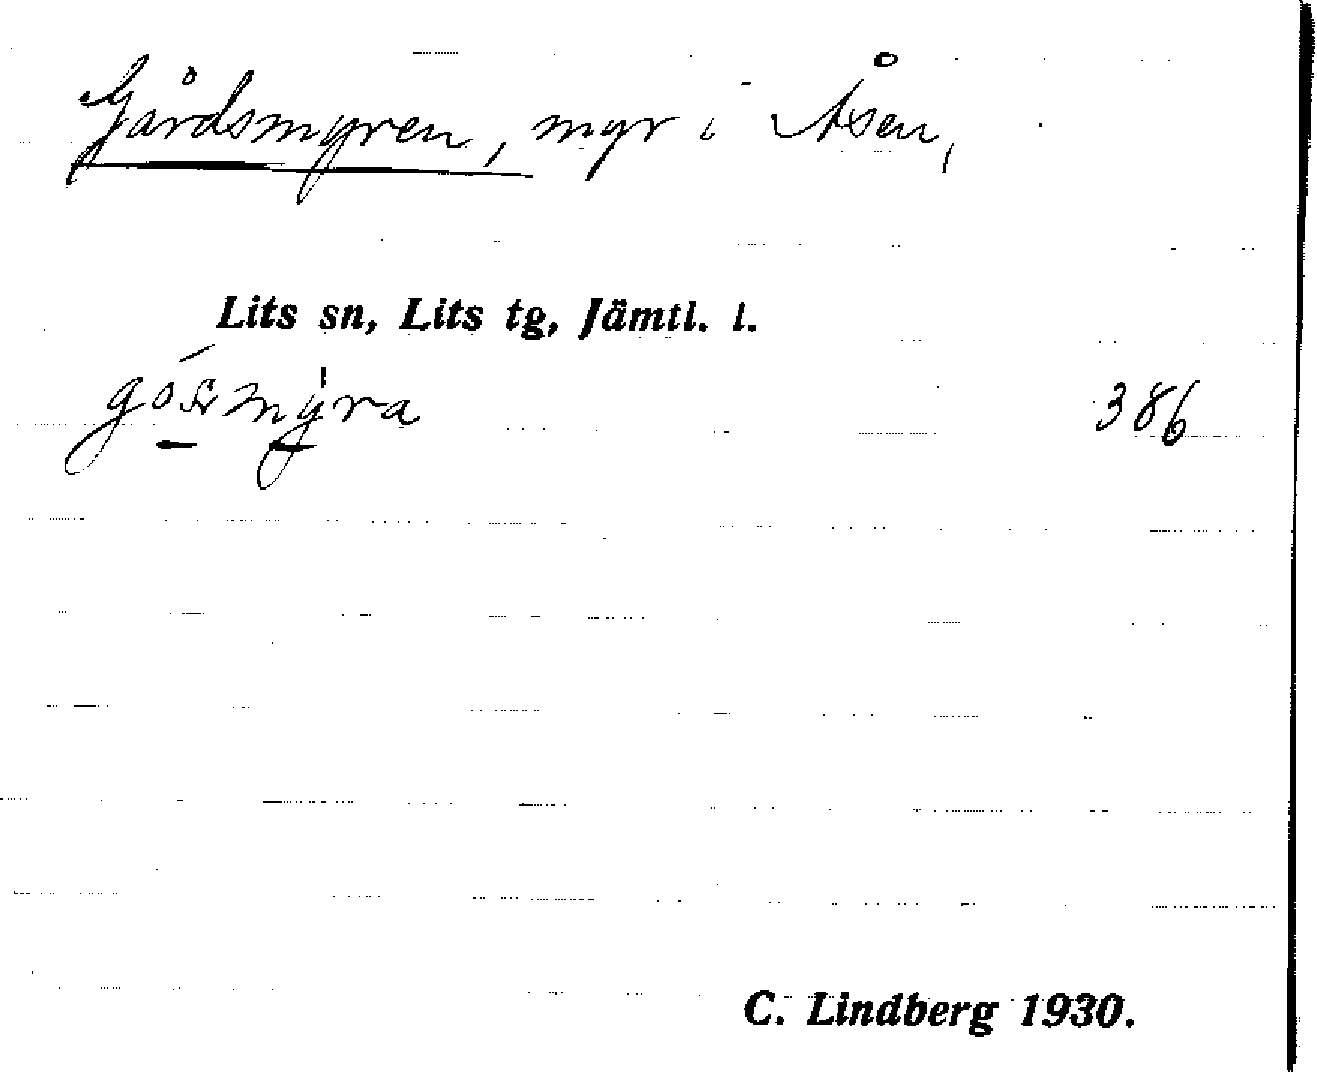 Gårdsmyren, myr i Åsen,
Lits sn, Lits tg, Jämtl. l.
386
C. Lindberg 1930.